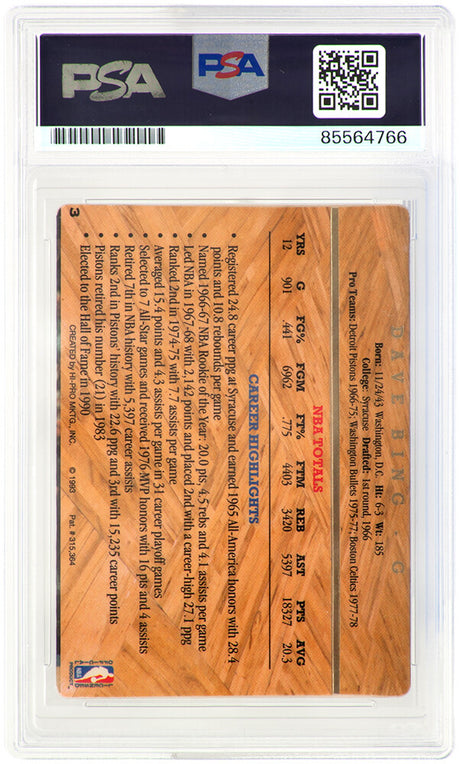 PSA
PSA
85564766
DAVE BING - G
Born: 11/24/43 Washington, D.C. Ht: 6-3 Wt: 185
College: Syracuse Drafted: 1st round, 1966
Pro Teams: Detroit Pistons 1966-75; Washington Bullets 1975-77; Boston Celtics 1977-78
NBA TOTALS
YRS G FG% FGM FT% FTM REB AST PTS AVG
12 901 .441 6962 .775 4403 3420 5397 18327 20.3
CAREER HIGHLIGHTS
• Registered 24.8 career ppg at Syracuse and earned 1965 All-America honors with 28.4
points and 10.8 rebounds per game
• Named 1966-67 NBA Rookie of the Year: 20.0 pts, 4.5 rebs and 4.1 assists per game
• Led NBA in 1967-68 with 2,142 points and placed 2nd with a career-high 27.1 ppg
• Ranked 2nd in 1974-75 with 7.7 assists per game
• Averaged 15.4 points and 4.3 assists per game in 31 career playoff games
• Selected to 7 All-Star games and received 1976 MVP honors with 16 pts and 4 assists
• Retired 7th in NBA history with 5,397 career assists
• Ranks 2nd in Pistons' history with 22.6 ppg and 3rd with 15,235 career points
• Pistons retired his number (21) in 1983
• Elected to the Hall of Fame in 1990
3 CREATED by HI-PRO MKTG., INC. © 1993 Pat. #315,364
OFFICIAL
NBA
LICENSED
PRODUCT